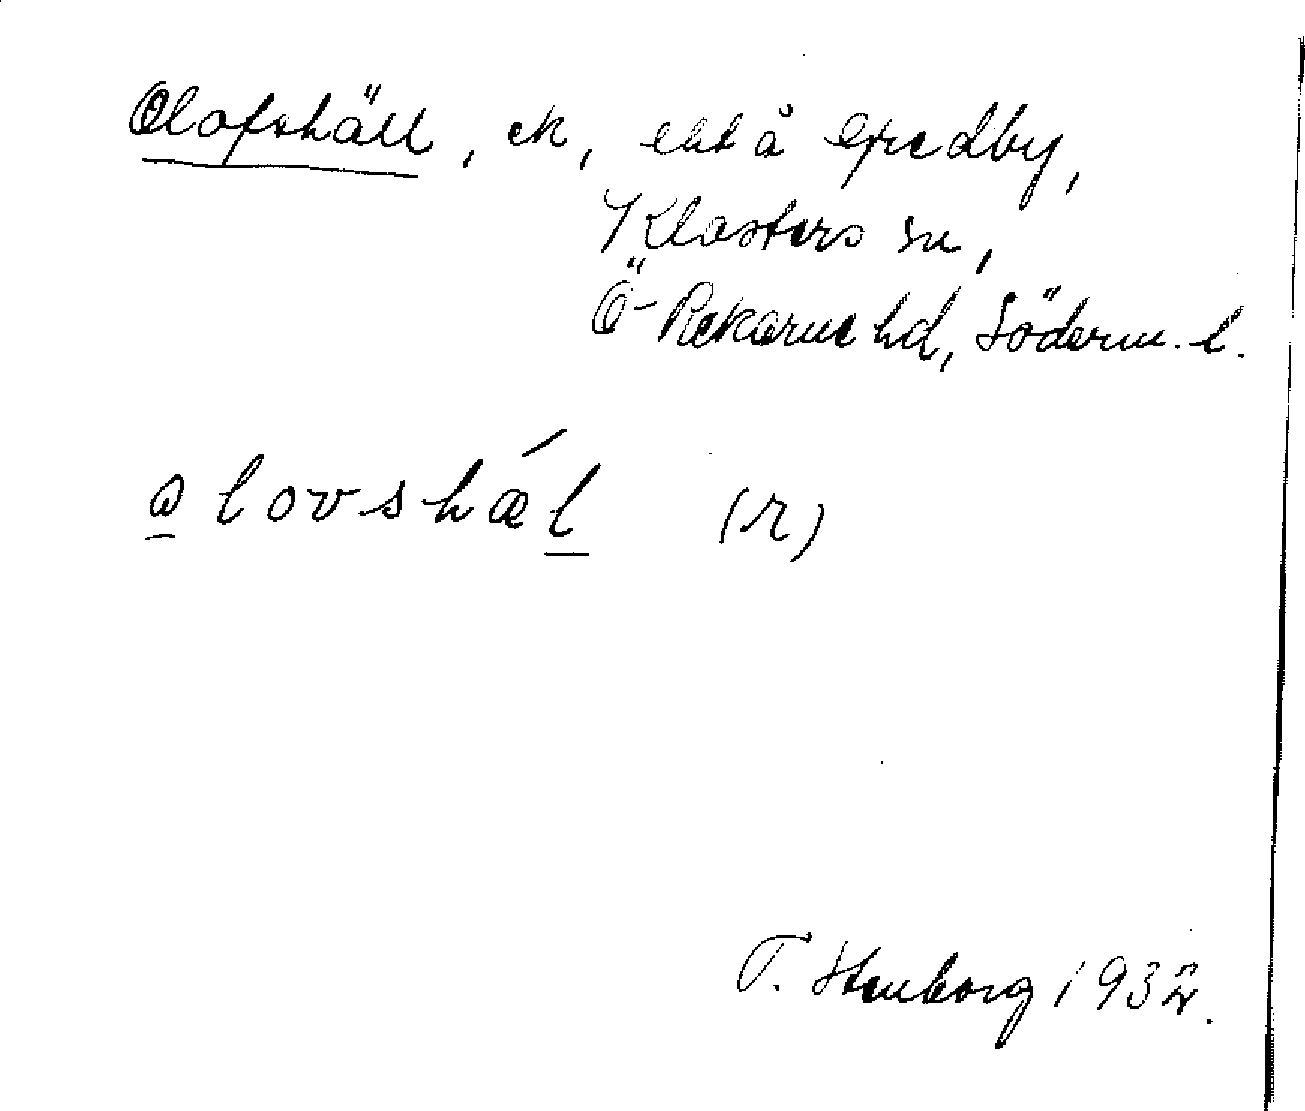 Olofshäll, ek, ekt å Gredby,
Klosters sn,
Ö-Rekarne hd, Söderm. l.
a lovshæl (r)
T. Stenborg 1932.